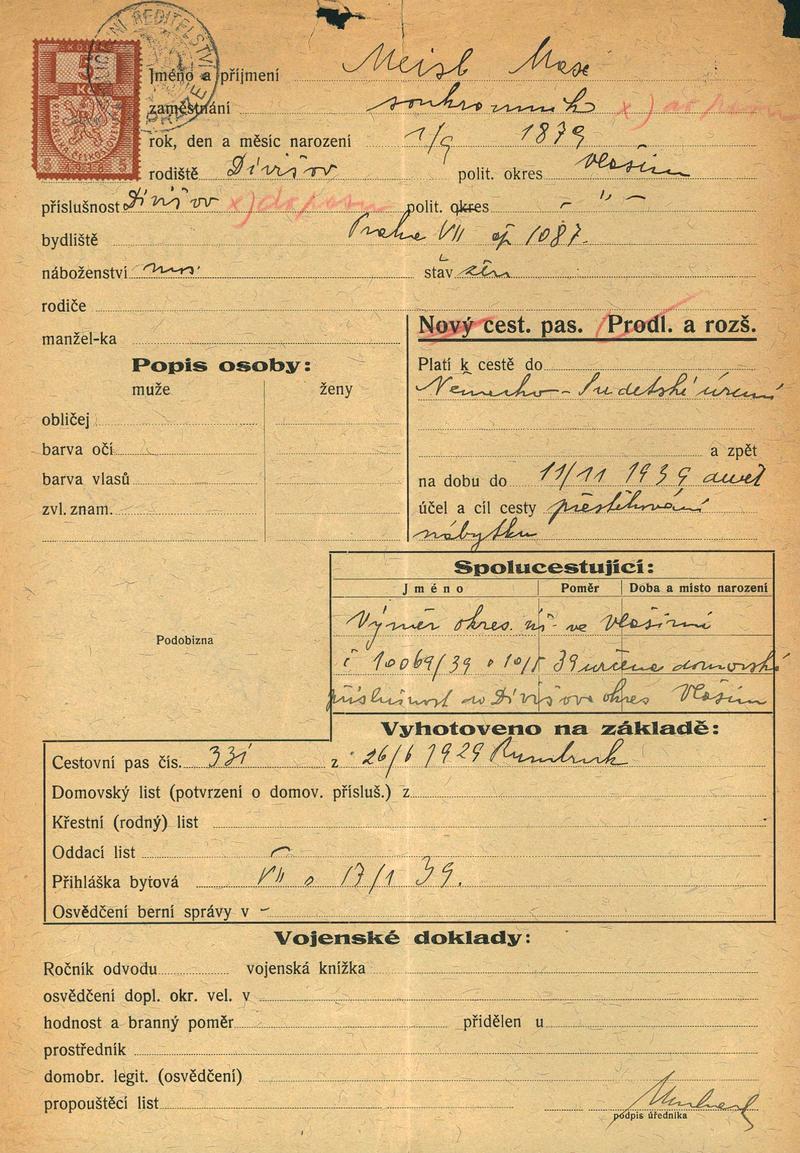 KORUNA
5
Kč
REPUBLIKA ČESKOSLOVENSKÁ
5 1938 5
ŘEDITELSTVÍ
Jméno a příjmení Meisl Max
zaměstnání soukromník x) do pasu
rok, den a měsíc narození 1/9 1879
rodiště Divišov polit. okres Vlašim
příslušnost Divišov x) do pasu polit. okres - " -
bydliště Praha VII čp 1087.
náboženství mos. stav žen
rodiče
manžel-ka
Nový cest. pas. Prodl. a rozš.
Popis osoby:
muže ženy
obličej
barva očí
barva vlasů
zvl. znam.
Platí k cestě do
Německo - Sudetské území
a zpět
na dobu do 11/11 1939
účel a cíl cesty přestěhování
nábytku
Podobizna
Spolucestující:
Jméno Poměr Doba a místo narození
Výměr okres. úř. ve Vlašimi
č 10069/39 o 10/5 39 určena domovská
příslušnost do Divišova okres Vlašim
Vyhotoveno na základě:
Cestovní pas čís. 331 z 26/6 1929 Rumburk
Domovský list (potvrzení o domov. přísluš.) z
Křestní (rodný) list
Oddací list -
Přihláška bytová VII o 17/1 39.
Osvědčení berní správy v -
Vojenské doklady:
Ročník odvodu vojenská knížka
osvědčení dopl. okr. vel. v
hodnost a branný poměr přidělen u
prostředník
domobr. legit. (osvědčení)
propouštěcí list
podpis úředníka